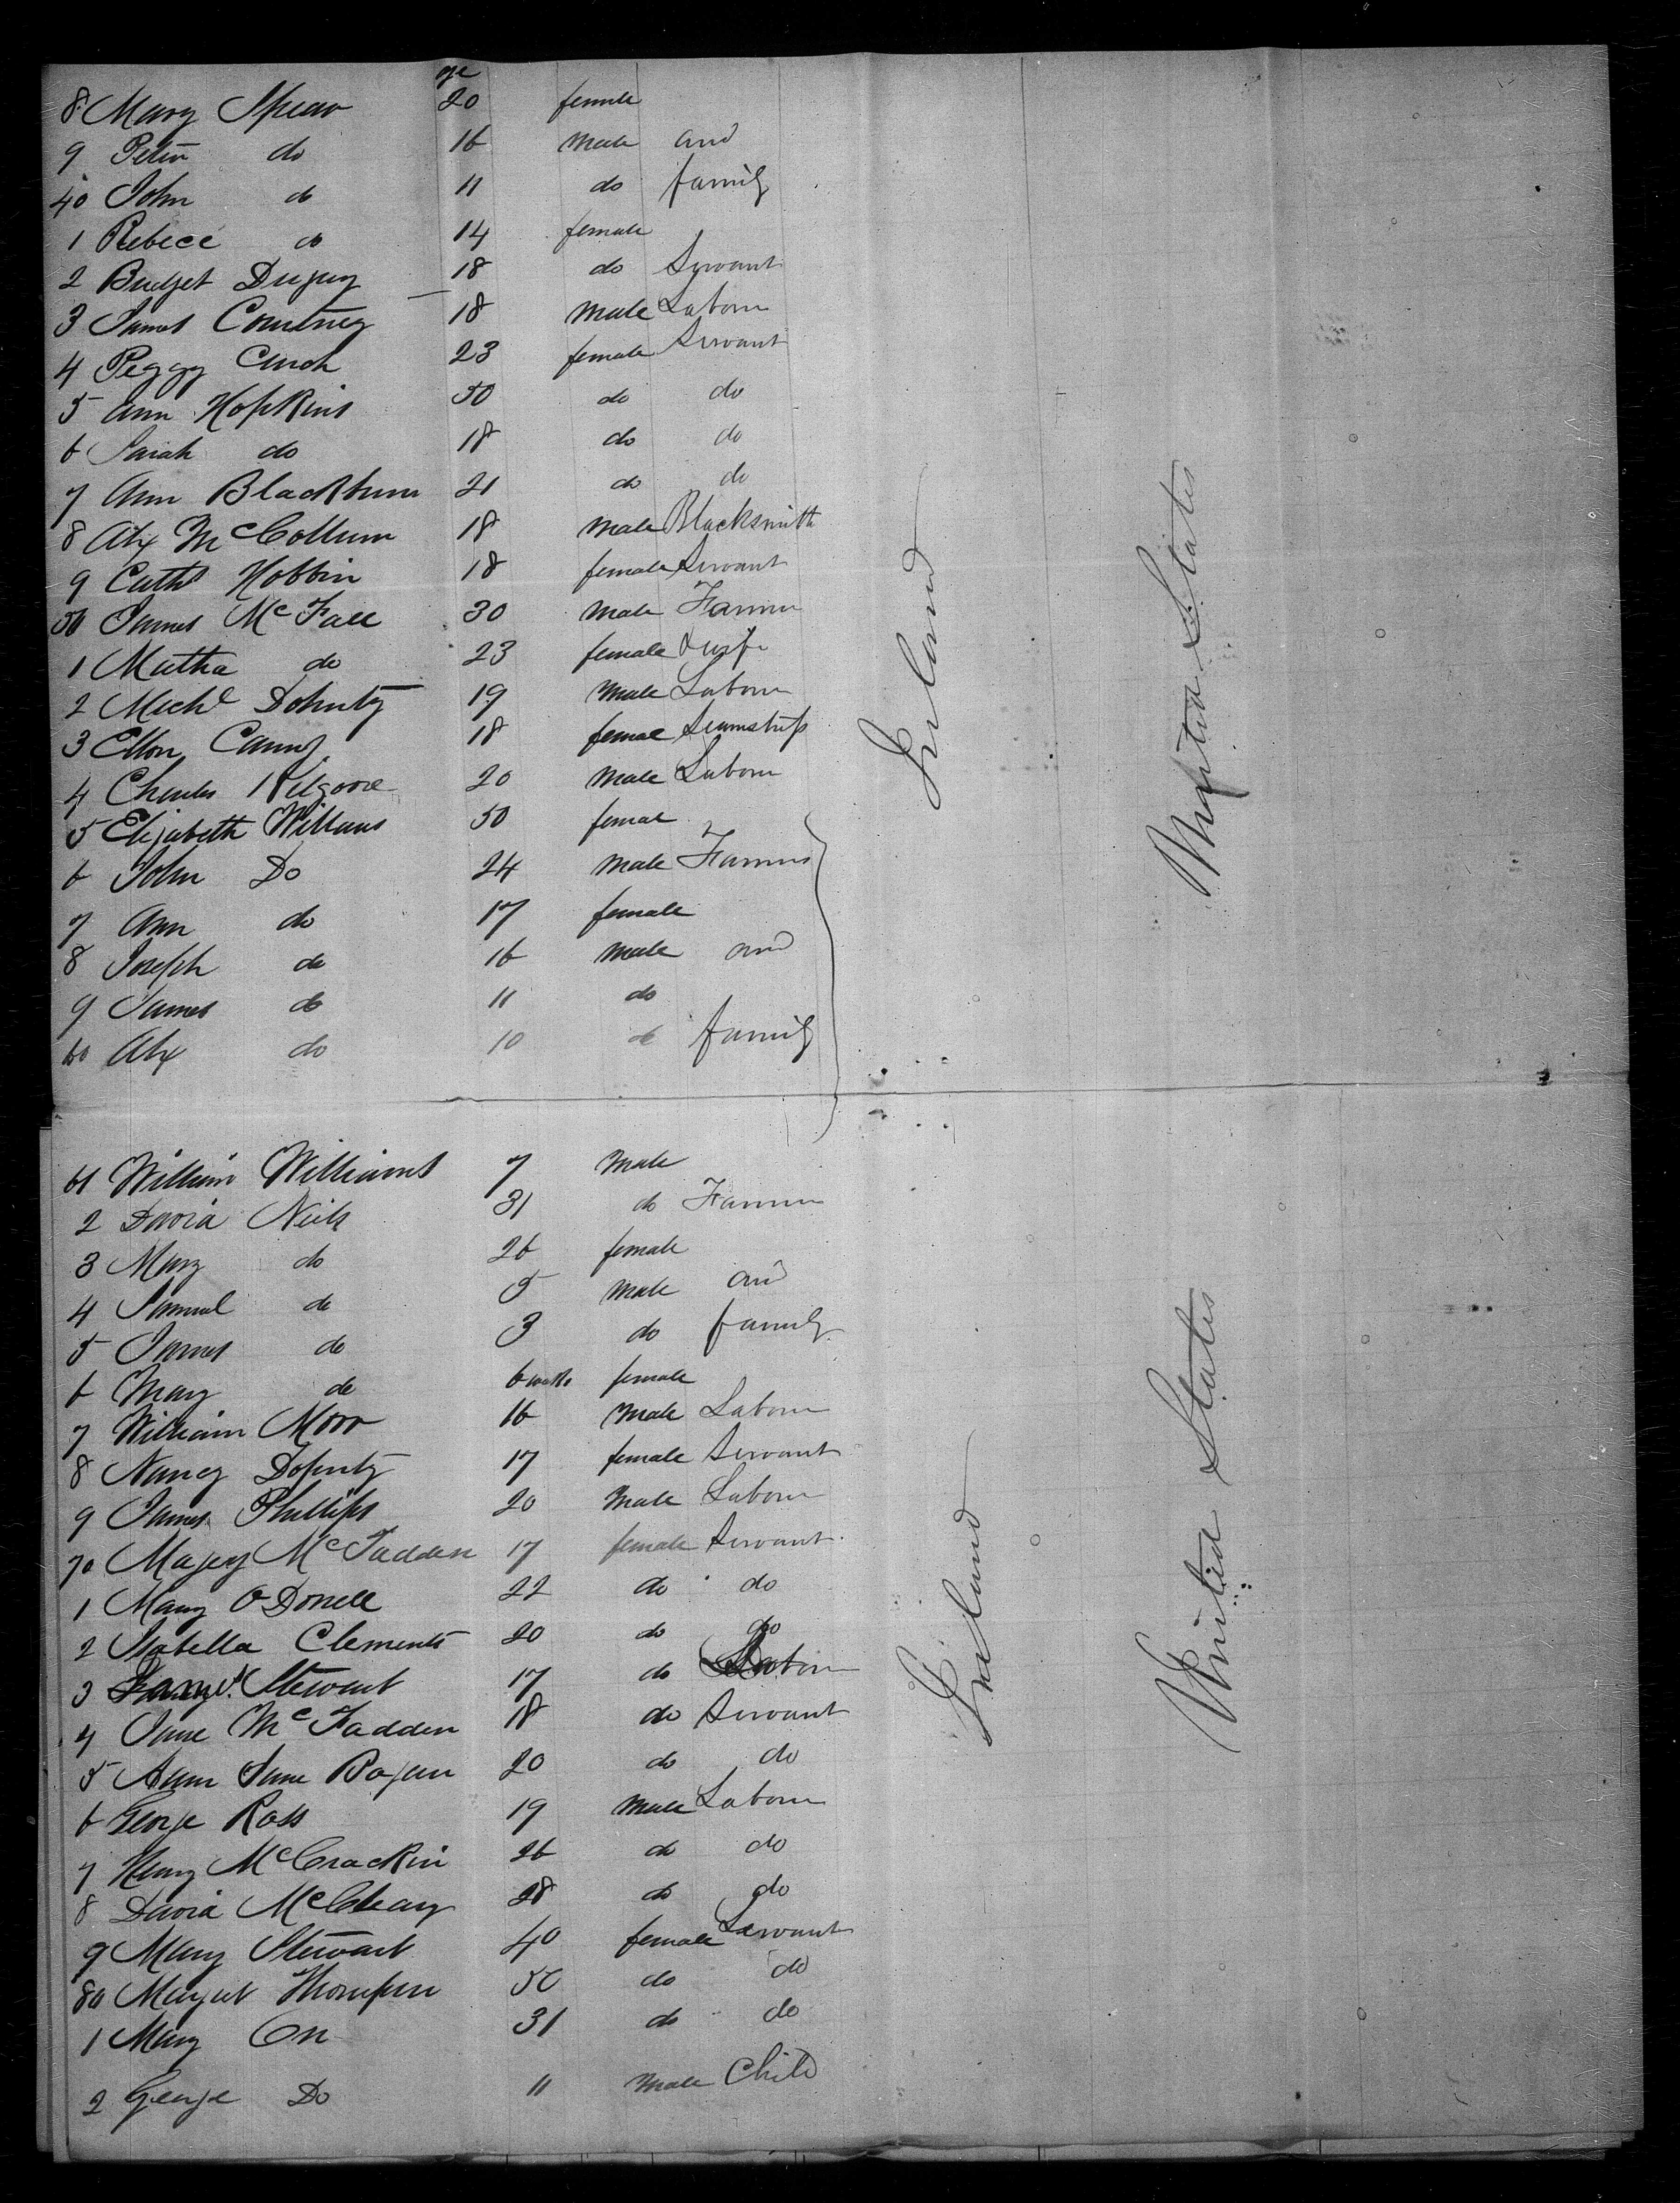 age
8 Mary Spear 20 female
9 Peter do 16 male and
40 John do 11 do family
1 Rebecc do 14 female
2 Bridget 18 do Servant
3 James Courtney 18 male Labour
4 Peggy 23 female Servant
5 Ann Hopkins 50 do do
6 Sarah do 18 do do
7 Ann Blackburn 21 do do
8 Alx McCollum 18 male Blacksmith
9 Cath Hobbin 18 female Servant
50 James McFall 30 male Farmer
1 Matha do 23 female & wife
2 Michl Doherty 19 male Labour
3 Ellon Canny 18 female Seamstress
4 Charles Kilgore 20 male Labour
5 Elizabeth Williams 50 female
6 John Do 24 male Farmers
7 Ann do 17 female
8 Joseph do 16 male and
9 James do 11 do
60 Alx do 10 do family
Ireland
United States
61 William Williams 7 male
2 David Neils 31 do Farmer
3 Mary do 26 female
4 Samuel do 5 male and
5 James do 3 do family
6 Mary do 6 female
7 William Moor 16 male Labour
8 Nancy Doherty 17 female Servant
9 James Phillips 20 male Labour
70 McFadden 17 female Servant
1 Mary O Donell 22 do do
2 Isabella Clements 20 do do
3 Stewart 17 do
4 Jane McFadden 18 do Servant
5 Ann Jane 20 do do
6 George Ross 19 male Labour
7 Henry McCrackin 26 do do
8 David McCleary 28 do do
9 Mary Stewart 40 female Servant
80 Margret Thompson 50 do do
1 Mary Orr 31 do do
2 George Do 11 male Child
Ireland
United States